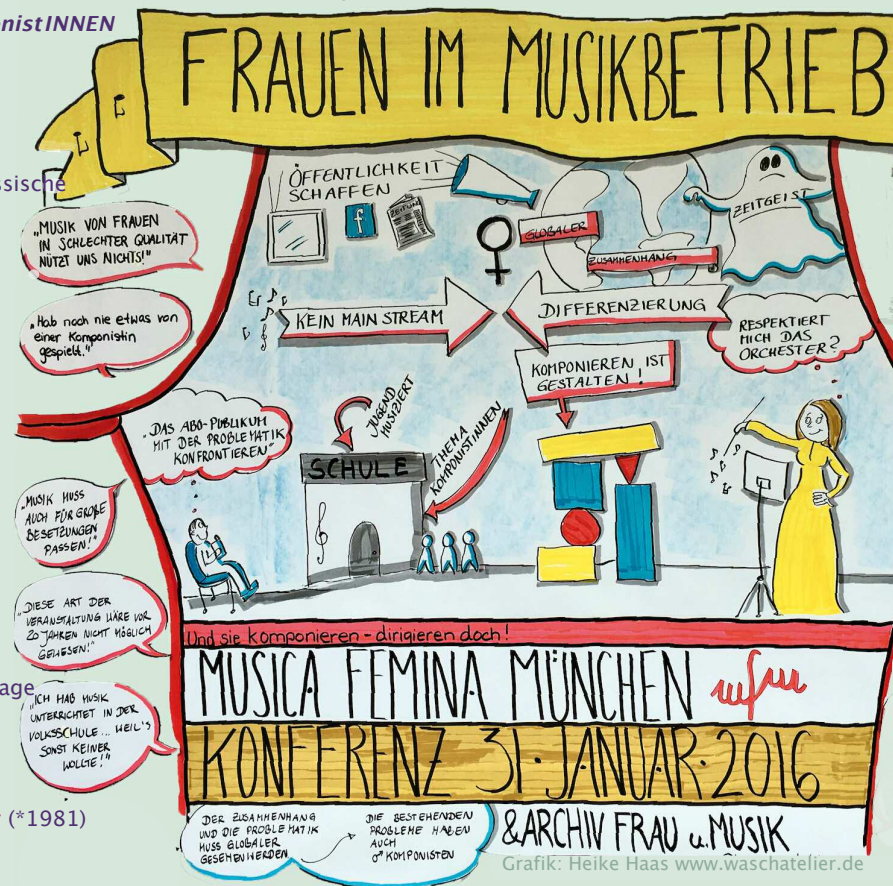 nistINNEN
FRAUEN IM MUSIKBETRIEB
ssische
„MUSIK VON FRAUEN
IN SCHLECHTER QUALITÄT
NÜTZT UNS NICHTS!"
„Hab noch nie etwas von
einer Komponistin
gespielt."
ÖFFENTLICHKEIT
SCHAFFEN
f
ZEITUNG
GLOBALER
ZUSAMMENHANG
ZEITGEIST
KEIN MAIN STREAM
DIFFERENZIERUNG
RESPEKTIERT
MICH DAS
ORCHESTER?
KOMPONIEREN IST
GESTALTEN!
„DAS ABO-PUBLIKUM
MIT DER PROBLEMATIK
KONFRONTIEREN"
JUGEND
MUSIZIERT
SCHULE
THEMA
KOMPONISTINNEN
„MUSIK MUSS
AUCH FÜR GROßE
BESETZUNGEN
PASSEN!"
„DIESE ART DER
VERANSTALTUNG WÄRE VOR
20 JAHREN NICHT MÖGLICH
GEWESEN!"
age
„ICH HAB MUSIK
UNTERRICHTET IN DER
VOLKSSCHULE... WEIL'S
SONST KEINER
WOLLTE!"
(*1981)
Und sie komponieren - dirigieren doch!
MUSICA FEMINA MÜNCHEN mfm
KONFERENZ 31. JANUAR. 2016
DER ZUSAMMENHANG
UND DIE PROBLEMATIK
MUSS GLOBALER
GESEHEN WERDEN
DIE BESTEHENDEN
PROBLEME HABEN
AUCH
♂ KOMPONISTEN
& ARCHIV FRAU u. MUSIK
Grafik: Heike Haas www.waschatelier.de